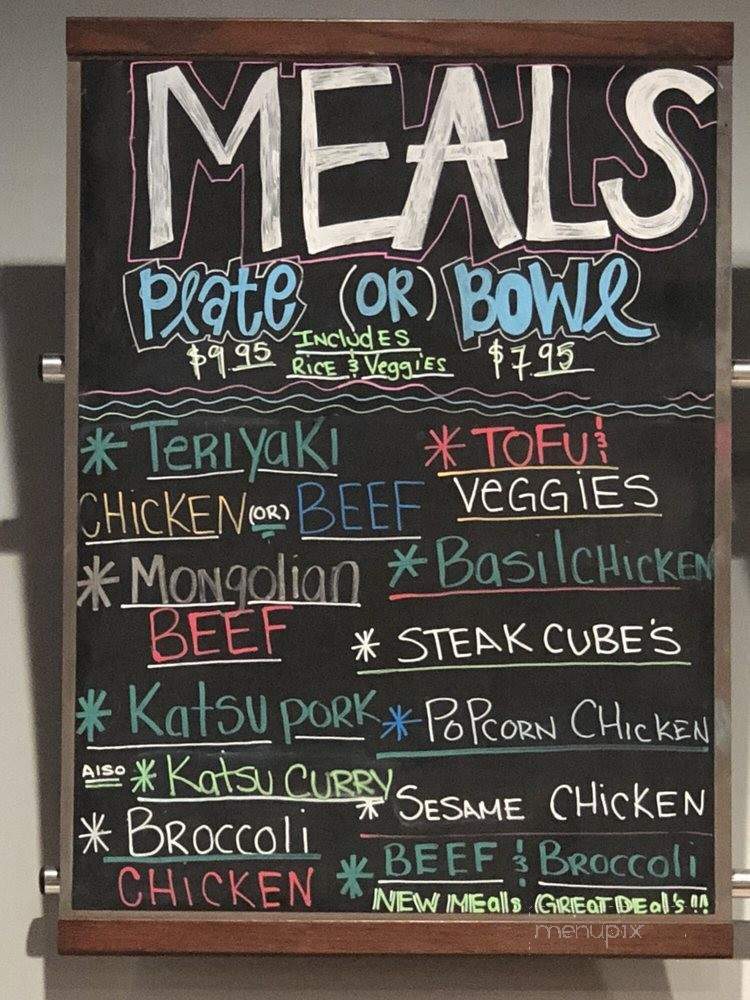 MEALS
Plate (OR) BOWL
$9.95 INCLUDES RICE & Veggies $7.95
* TERIYAKI
CHICKEN (OR) BEEF
* MONGOLIAN
BEEF
* Katsu PORK
ALSO * Katsu CURRY
* BROCCOLI
CHICKEN
* TOFU &
VEGGIES
* Basil CHICKEN
* STEAK CUBE'S
* POPCORN CHICKEN
* SESAME CHICKEN
* BEEF & BROCCOLI
NEW MEals GREAT DEal's !!
menupix